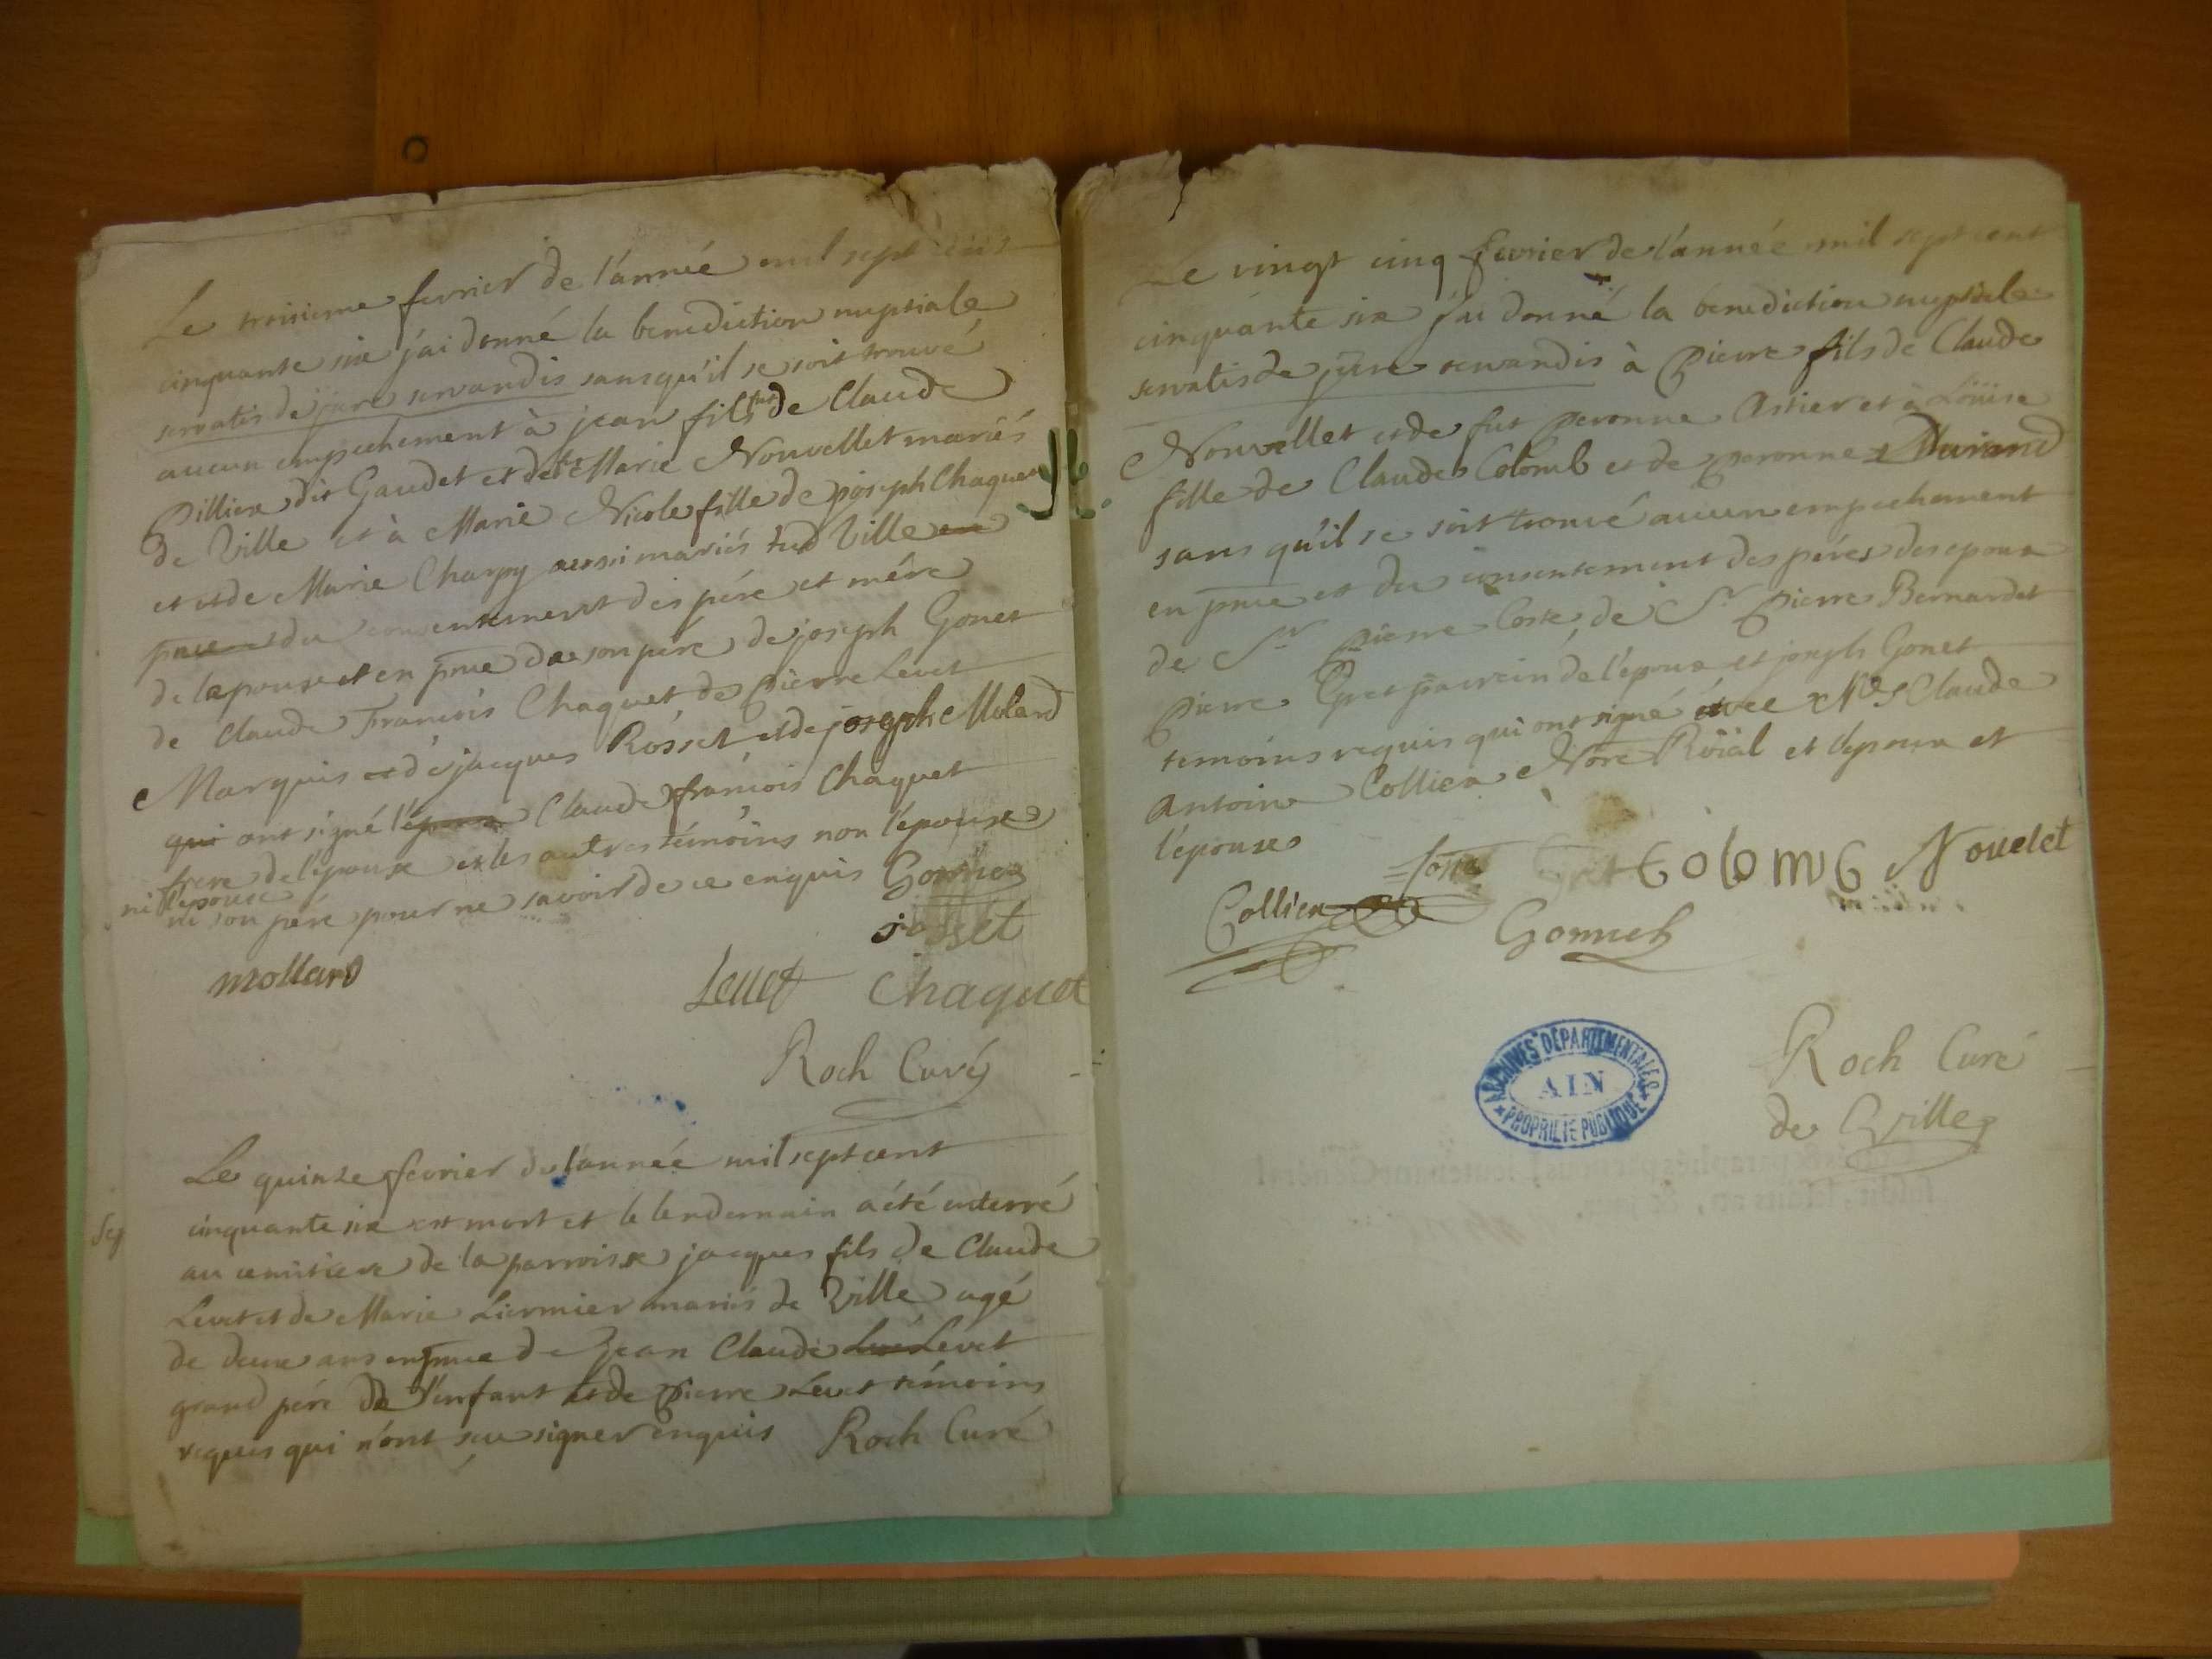 Le troisieme fevrier de l'année mil sept cens
cinquante six j'ai donné la benediction nuptiale
servatis de jure servandis sans qu'il se soit trouvé
aucun empechement à jean fils de Claude
Pillion dit Gaudet et de Marie Nouvellet mariés
de Ville et à Marie Nicole fille de joseph Chaquet
et de Marie Charpy aussi mariés Ville
pnce et du consentement des pére et mére
de l'epouse et en pnce de son pére de joseph Gonet
de Claude François Chaquet de Pierre Levet
Marquis et de jacques Rosset et de joseph Molard
qui ont signé l'epoux Claude françois Chaquet
frere de l'épouse et les autres témoins non l'épouse
ni l'epoux
ni son pére pour ne savoir de ce enquis Gonnet
rosset
mollard
Levet Chaquet
Roch Curé
Le quinze fevrier de l'année mil sept cent
cinquante six est mort et le lendemain a été enterré
au cemitiere de la parroisse jacques fils de Claude
Levet et de Marie Liermier mariés de Ville agé
de deux ans en pnce de jean Claude Levet
grand pére de l'enfant et de Pierre Levet témoins
requis qui n'ont sceu signer enquis Roch Curé
Le vingt cinq fevrier de l'année mil sept cent
cinquante six j'ai donné la benediction nuptiale
servatis de jure servandis à Pierre fils de Claude
Nouvellet et de fut Peronne Astier et à Loüise
fille de Claude Colomb et de Peronne Durand
sans qu'il se soit trouvé aucun empechement
en pnce et du consentement des péres des epoux
de Sr Pierre Coste, de Sr Pierre Bernardet
Pierre Gret parrein de l'epoux et joseph Gonet
temoins requis qui ont signé avec Me Claude
Antoine Collien Nore Roïal et l'epoux et
l'epouse
Coste Gret Colomb Nouelet
Collien
Gonnet
ARCHIVES DÉPARTEMENTALES
AIN
PROPRIÉTÉ PUBLIQUE
Roch Curé
de Ville